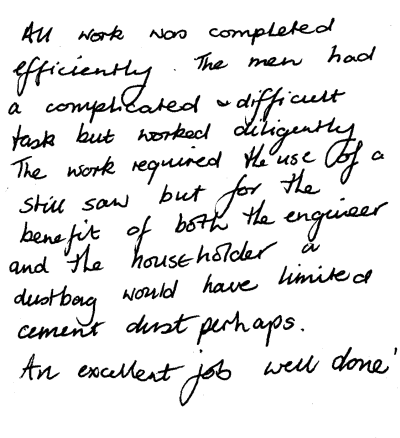 All work was completed
efficiently. The men had
a complicated & difficult
task but worked diligently
The work required the use of a
still saw but for the
benefit of both the engineer
and the householder a
dustbag would have limited
cement dust perhaps.
An excellent job well done'